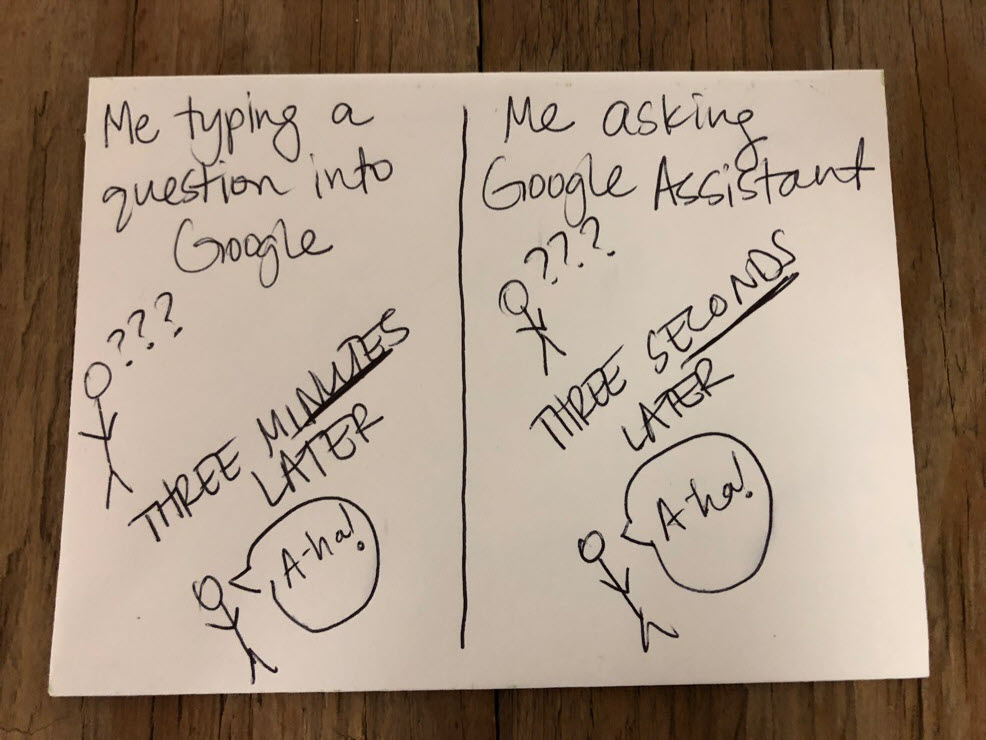 Me typing a
question into
Google
???
THREE MINUTES
LATER
A-ha!
Me asking
Google Assistant
???
THREE SECONDS
LATER
A-ha!